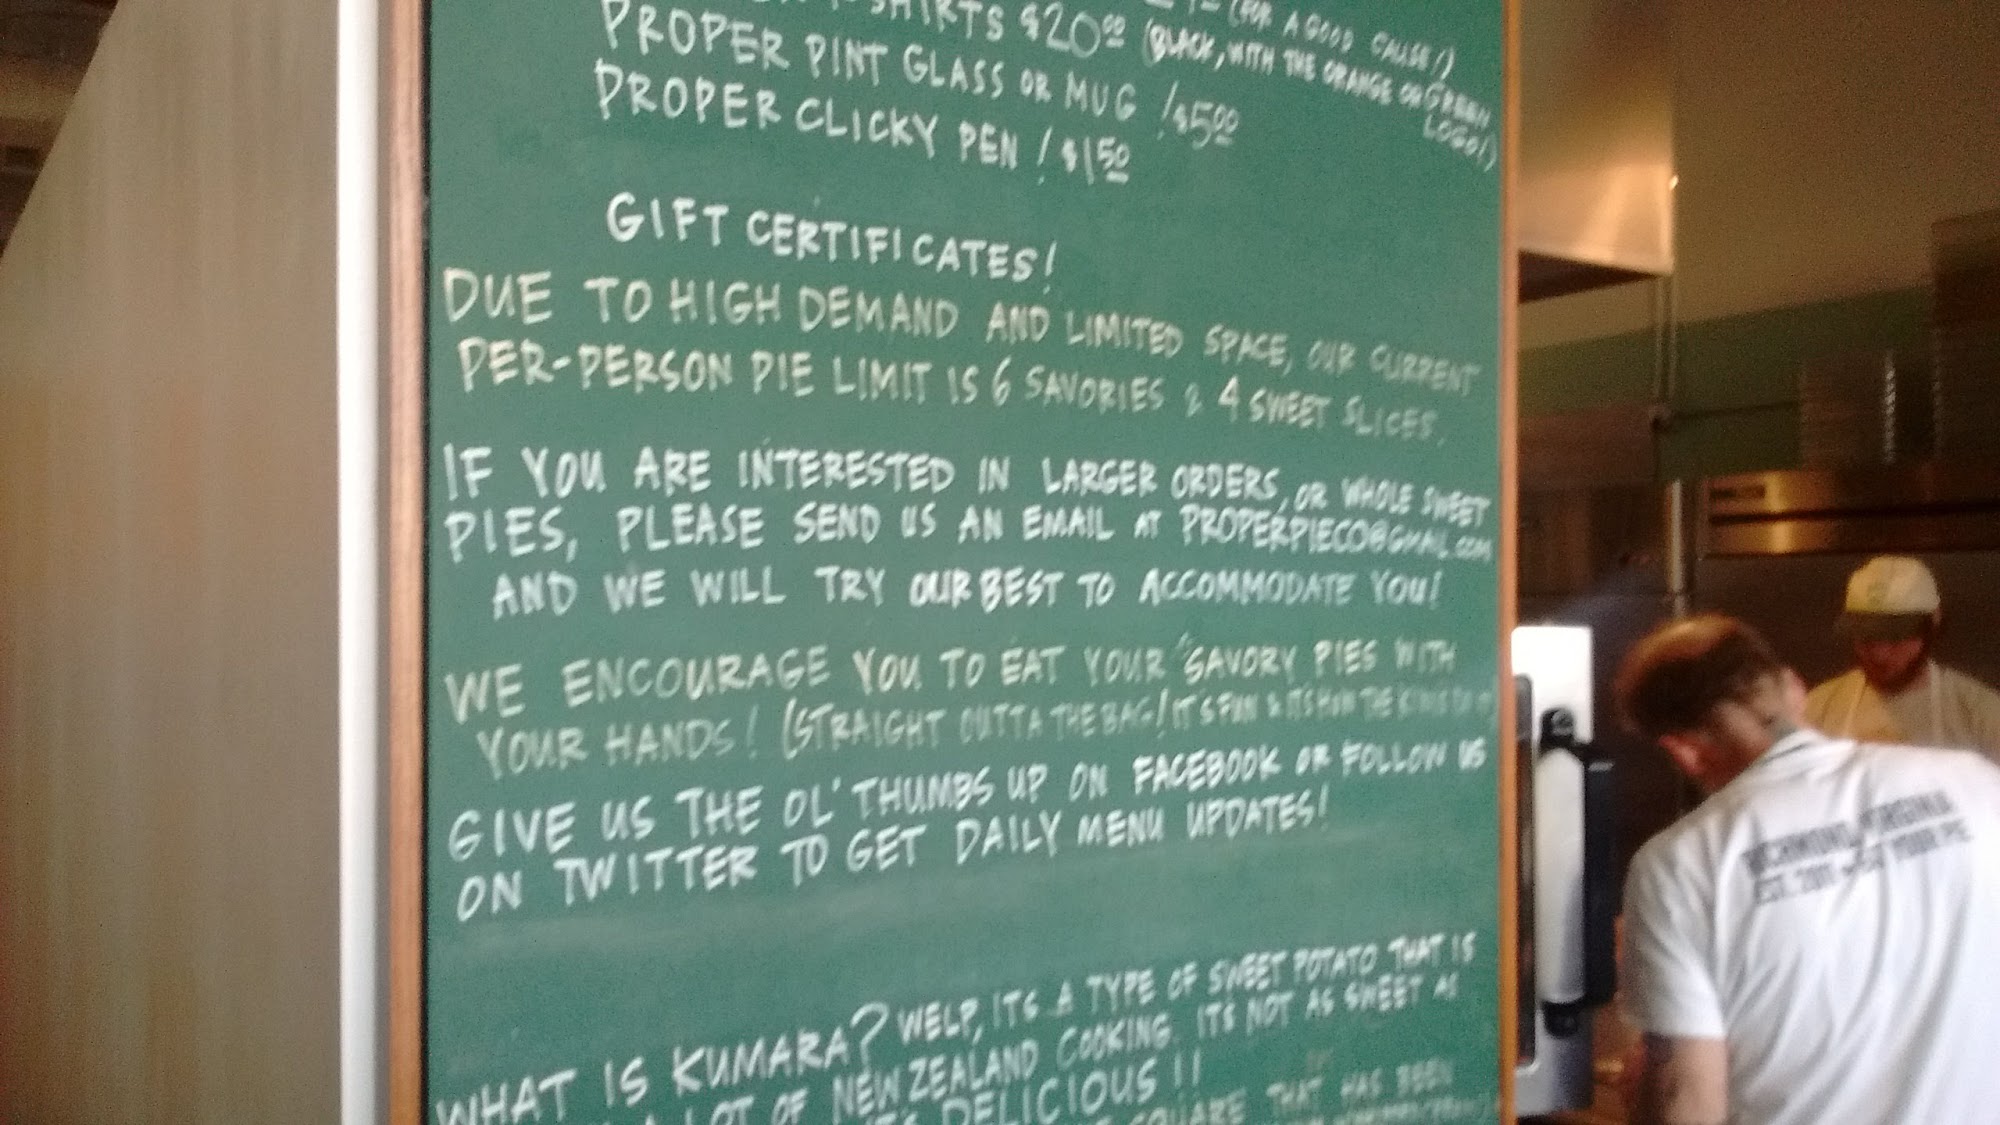 T-SHIRTS $20.00 (FOR A GOOD CAUSE!)
PROPER PINT GLASS OR MUG! $5.00 (BLACK, WITH THE ORANGE OR GREEN LOGO!)
PROPER CLICKY PEN! $1.50
GIFT CERTIFICATES!
DUE TO HIGH DEMAND AND LIMITED SPACE, OUR CURRENT
PER-PERSON PIE LIMIT IS 6 SAVORIES & 4 SWEET SLICES.
IF YOU ARE INTERESTED IN LARGER ORDERS, OR WHOLE SWEET
PIES, PLEASE SEND US AN EMAIL AT PROPERPIECO@GMAIL.COM
AND WE WILL TRY OUR BEST TO ACCOMMODATE YOU!
WE ENCOURAGE YOU TO EAT YOUR SAVORY PIES WITH
YOUR HANDS! (STRAIGHT OUTTA THE BAG! IT'S FUN & IT'S HOW THE KIWIS DO IT)
GIVE US THE OL' THUMBS UP ON FACEBOOK OR FOLLOW US
ON TWITTER TO GET DAILY MENU UPDATES!
WHAT IS KUMARA? WELP, ITS A TYPE OF SWEET POTATO THAT IS
A LOT OF NEW ZEALAND COOKING. IT'S NOT AS SWEET AS
DELICIOUS!!
SQUARE THAT HAS BEEN
RICHMOND, VIRGINIA
EST. 2011 YOUR PIE